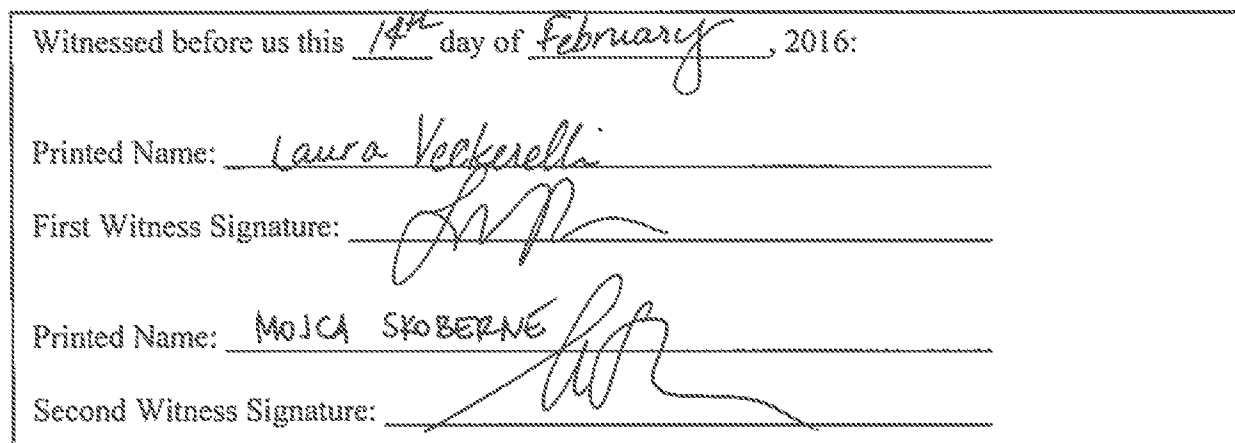 Witnessed before us this 14th day of February, 2016:
Printed Name: Laura Veckerelli
First Witness Signature:
Printed Name: MOJCA SKOBERNE
Second Witness Signature: